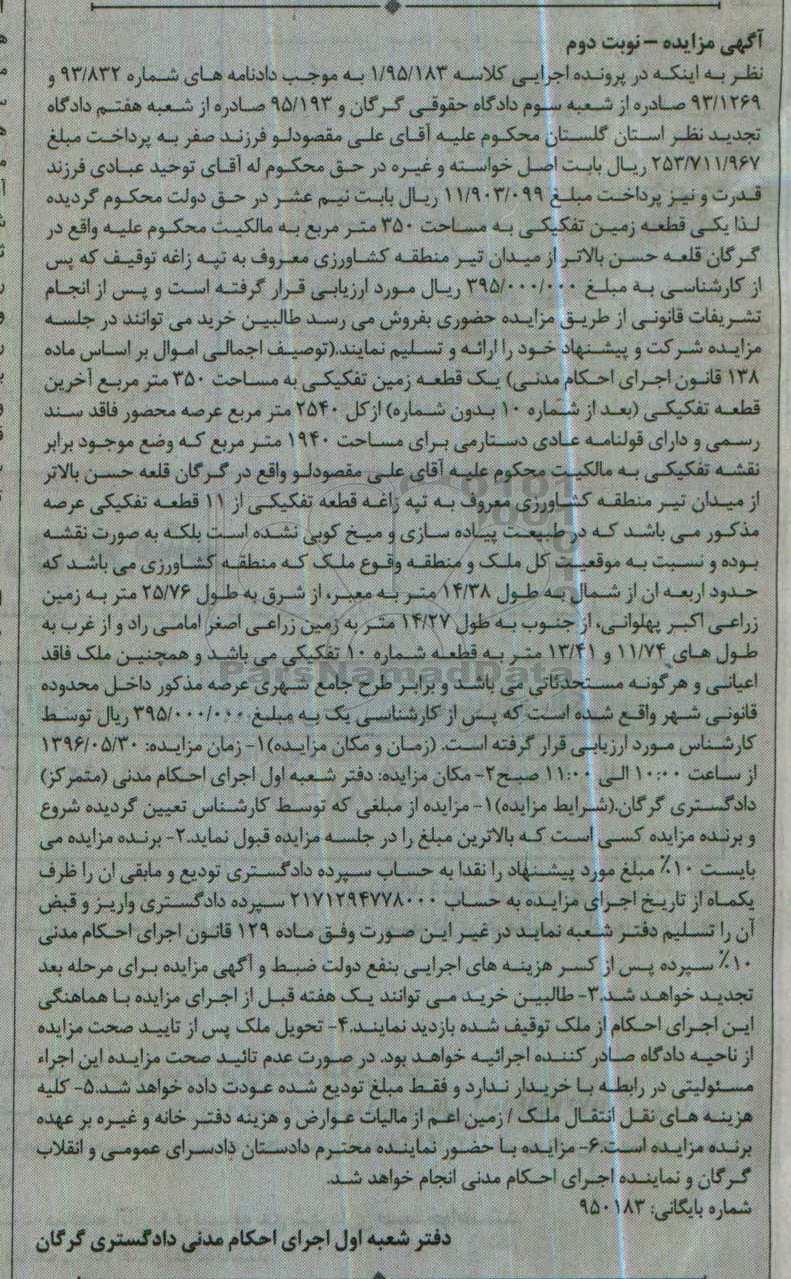 آگهی مزایده – نوبت دوم
نظر به اینکه در پرونده اجرایی کلاسه ۱/۹۵/۱۸۳ به موجب دادنامه های شماره ۹۳/۸۳۲ و
۹۳/۱۲۶۹ صادره از شعبه سوم دادگاه حقوقی گرگان و ۹۵/۱۹۳ صادره از شعبه هفتم دادگاه
تجدید نظر استان گلستان محکوم علیه آقای علی مقصودلو فرزند صفر به پرداخت مبلغ
۲۵۳/۷۱۱/۹۶۷ ریال بابت اصل خواسته و غیره در حق محکوم له آقای توحید عبادی فرزند
قدرت و نیز پرداخت مبلغ ۱۱/۹۰۳/۰۹۹ ریال بابت نیم عشر در حق دولت محکوم گردیده
لذا یکی قطعه زمین تفکیکی به مساحت ۳۵۰ متر مربع به مالکیت محکوم علیه واقع در
گرگان قلعه حسن بالاتر از میدان تیر منطقه کشاورزی معروف به تپه زاغه توقیف که پس
از کارشناسی به مبلغ ۳۹۵/۰۰۰/۰۰۰ ریال مورد ارزیابی قرار گرفته است و پس از انجام
تشریفات قانونی از طریق مزایده حضوری بفروش می رسد طالبین خرید می توانند در جلسه
مزایده شرکت و پیشنهاد خود را ارائه و تسلیم نمایند.(توصیف اجمالی اموال بر اساس ماده
۱۳۸ قانون اجرای احکام مدنی) یک قطعه زمین تفکیکی به مساحت ۳۵۰ متر مربع آخرین
قطعه تفکیکی (بعد از شماره ۱۰ بدون شماره) ازکل ۲۵۴۰ متر مربع عرصه محصور فاقد سند
رسمی و دارای قولنامه عادی دستارمی برای مساحت ۱۹۴۰ متر مربع که وضع موجود برابر
نقشه تفکیکی به مالکیت محکوم علیه آقای علی مقصودلو واقع در گرگان قلعه حسن بالاتر
از میدان تیر منطقه کشاورزی معروف به تپه زاغه قطعه تفکیکی از ۱۱ قطعه تفکیکی عرصه
مذکور می باشد که در طبیعت پیاده سازی و میخ کوبی نشده است بلکه به صورت نقشه
بوده و نسبت به موقعیت کل ملک و منطقه وقوع ملک که منطقه کشاورزی می باشد که
حدود اربعه ان از شمال به طول ۱۴/۳۸ متر به معبر، از شرق به طول ۲۵/۷۶ متر به زمین
زراعی اکبر پهلوانی، از جنوب به طول ۱۴/۲۷ متر به زمین زراعی اصغر امامی راد و از غرب به
طول های ۱۱/۷۴ و ۱۳/۴۱ متر به قطعه شماره ۱۰ تفکیکی می باشد و همچنین ملک فاقد
اعیانی و هرگونه مستحدثاتی می باشد و برابر طرح جامع شهری عرصه مذکور داخل محدوده
قانونی شهر واقع شده است که پس از کارشناسی یک به مبلیغ ۳۹۵/۰۰۰/۰۰۰ ریال توسط
کارشناس مورد ارزیابی قرار گرفته است. (زمان و مکان مزایده)۱- زمان مزایده: ۱۳۹۶/۰۵/۳۰
از ساعت ۱۰:۰۰ الی ۱۱:۰۰ صبح۲- مکان مزایده: دفتر شعبه اول اجرای احکام مدنی (متمرکز)
دادگستری گرگان.(شرایط مزایده)۱- مزایده از مبلغی که توسط کارشناس تعیین گردیده شروع
و برنده مزایده کسی است که بالاترین مبلغ را در جلسه مزایده قبول نماید.۲- برنده مزایده می
بایست ۱۰٪ مبلغ مورد پیشنهاد را نقدا به حساب سپرده دادگستری تودیع و مابقی ان را ظرف
یکماه از تاریخ اجرای مزایده به حساب ۲۱۷۱۲۹۴۷۷۸۰۰۰ سپرده دادگستری واریز و قبض
آن را تسلیم دفتر شعبه نماید در غیر این صورت وفق ماده ۱۲۹ قانون اجرای احکام مدنی
۱۰٪ سپرده پس از کسر هزینه های اجرایی بنفع دولت ضبط و آگهی مزایده برای مرحله بعد
تجدید خواهد شد.۳- طالبین خرید می توانند یک هفته قبل از اجرای مزایده با هماهنگی
این اجرای احکام از ملک توقیف شده بازدید نمایند.۴- تحویل ملک پس از تایید صحت مزایده
از ناحیه دادگاه صادر کننده اجرائیه خواهد بود. در صورت عدم تائید صحت مزایده این اجراء
مسئولیتی در رابطه با خریدار ندارد و فقط مبلغ تودیع شده عودت داده خواهد شد.۵- کلیه
هزینه های نقل انتقال ملک / زمین اعم از مالیات عوارض و هزینه دفتر خانه و غیره بر عهده
برنده مزایده است.۶- مزایده با حضور نماینده محترم دادستان دادسرای عمومی و انقلاب
گرگان و نماینده اجرای احکام مدنی انجام خواهد شد.
شماره بایگانی: ۹۵۰۱۸۳
دفتر شعبه اول اجرای احکام مدنی دادگستری گرگان
ParsNamadData